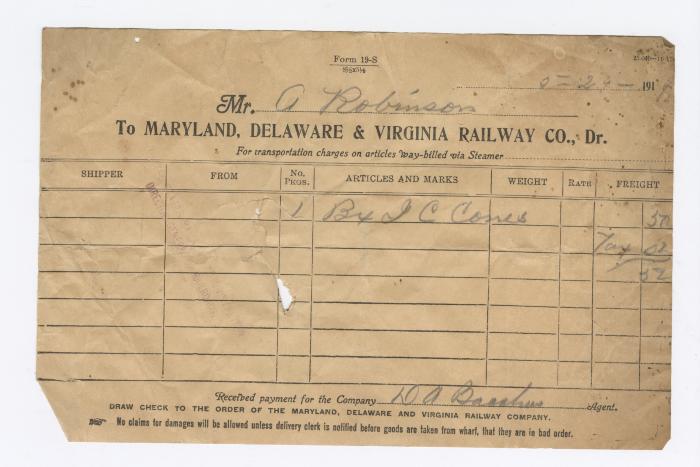 Form 19-S
5-29- 191
Mr. A Robinson
To MARYLAND, DELAWARE & VIRGINIA RAILWAY CO., Dr.
For transportation charges on articles way-billed via Steamer
SHIPPER FROM No. PKGS. ARTICLES AND MARKS WEIGHT RATE FREIGHT
1 Bx I C Cones 50
Tax 02
52
Received payment for the Company D A Bacchus Agent.
DRAW CHECK TO THE ORDER OF THE MARYLAND, DELAWARE AND VIRGINIA RAILWAY COMPANY.
No claims for damages will be allowed unless delivery clerk is notified before goods are taken from wharf, that they are in bad order.